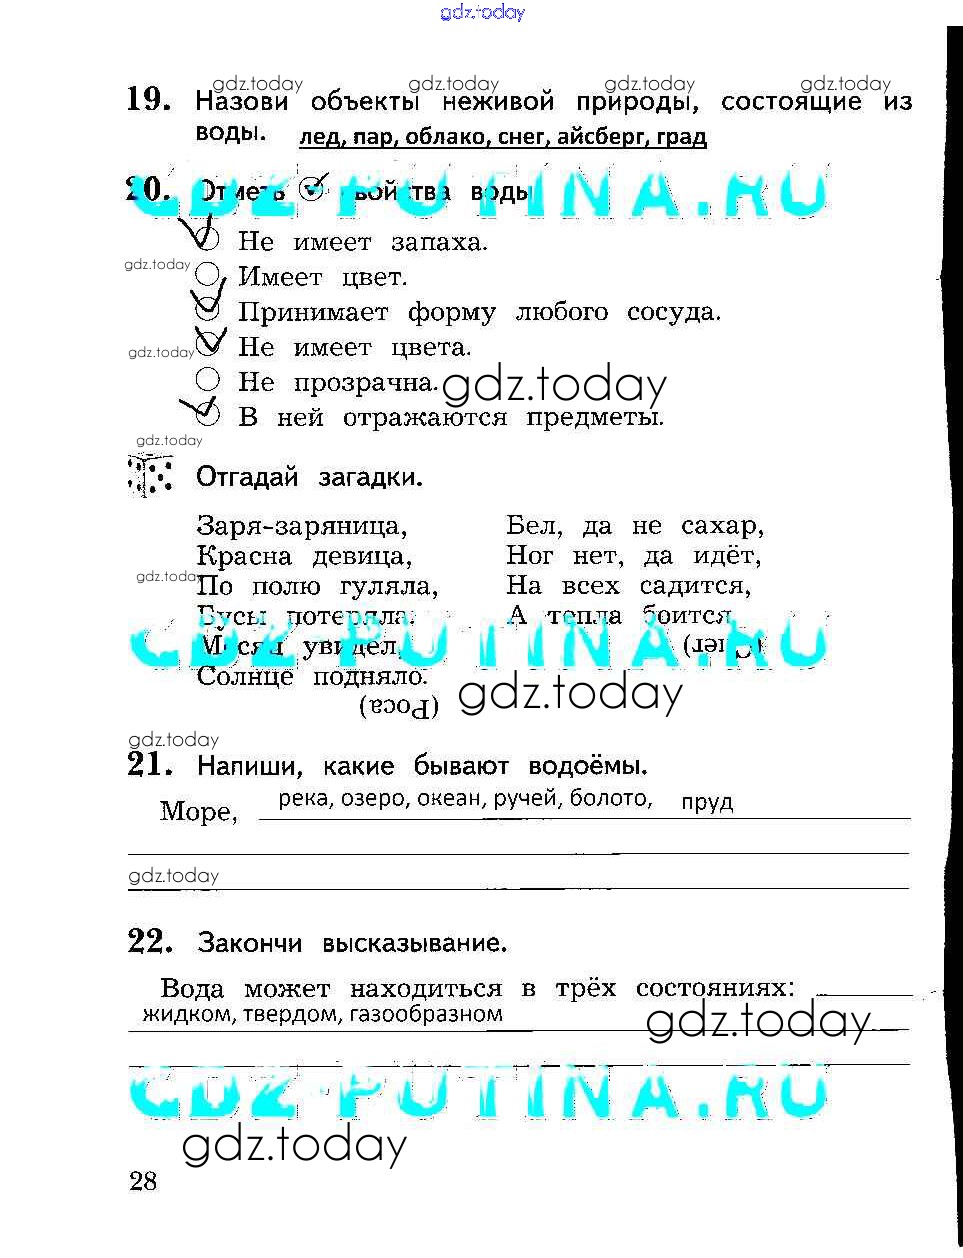 gdz.today
gdz.today gdz.today gdz.today gdz.today
19. Назови объекты неживой природы, состоящие из
воды. лед, пар, облако, снег, айсберг, град
20. Отметь свойства воды
GDZ-PUTINA.RU
Не имеет запаха.
gdz.today
Имеет цвет.
Принимает форму любого сосуда.
gdz.today
Не имеет цвета.
Не прозрачна.
gdz.today
В ней отражаются предметы.
gdz.today
Отгадай загадки.
Заря-заряница,
Красна девица,
По полю гуляла,
Бусы потеряла.
Месяц увидел,
Солнце подняло.
(Роса)
gdz.today
Бел, да не сахар,
Ног нет, да идёт,
На всех садится,
А тепла боится
(Снег)
GDZ-PUTINA.RU
gdz.today
gdz.today
21. Напиши, какие бывают водоёмы.
Море, река, озеро, океан, ручей, болото, пруд
gdz.today
22. Закончи высказывание.
Вода может находиться в трёх состояниях:
жидком, твердом, газообразном
gdz.today
GDZ-PUTINA.RU
gdz.today
28